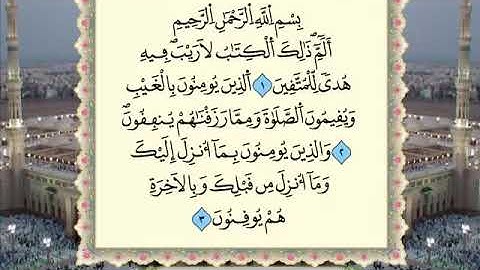 بِسْمِ اِ۬للَّهِ اِ۬لرَّحْمَٰنِ اِ۬لرَّحِيمِ
أَلَٓمِّٓۖ ذَٰلِكَ اَ۬لْكِتَٰبُ لَا رَيْبَۖ فِيهِ
هُدىٗ لِّلْمُتَّقِينَ ١ اَ۬لذِينَ يُومِنُونَ بِالْغَيْبِ
وَيُقِيمُونَ اَ۬لصَّلَوٰةَ وَمِمَّا رَزَقْنَٰهُمْ يُنفِقُونَۖ
٢ وَالذِينَ يُومِنُونَ بِمَآ أُنزِلَ إِلَيْكَ
وَمَآ أُنزِلَ مِن قَبْلِكَ وَبِالَاخِرَةِ
هُمْ يُوقِنُونَ ٣